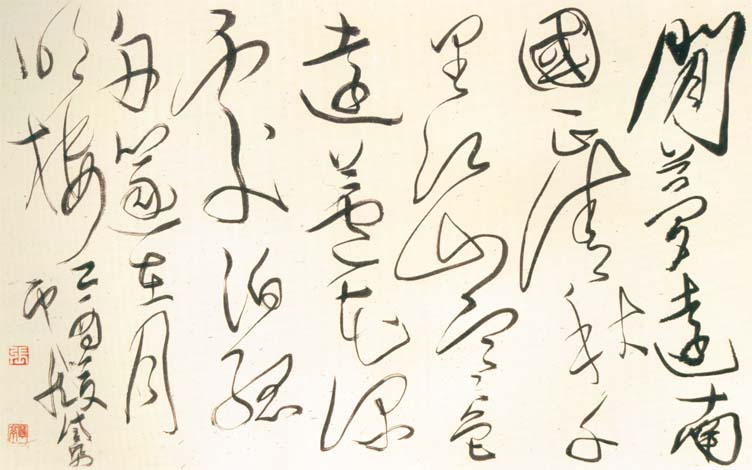 閒夢遠南
國正清秋千
里江山寒色
遠蘆花深
處泊孤
舟篴在月
明樓